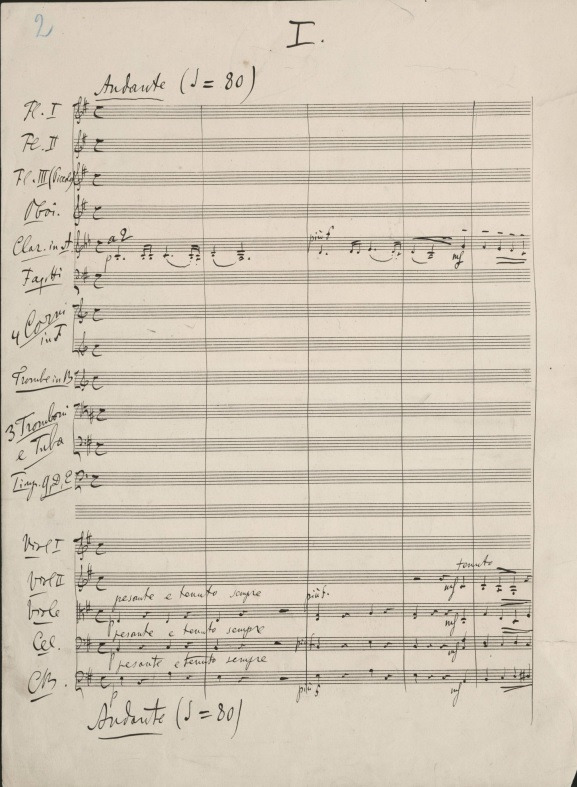 2
I.
Andante (♩= 80)
Fl. I
Fl. II
Fl. III (Piccolo)
Oboi.
Clar. in A
a 2
più f
p
mf
Fagotti
4 Corni
in F
Trombe in B
3 Tromboni
e Tuba
Timp. G, D, E
Viol I
Viol II
tenuto
mf
pesante e tenuto sempre
più f.
Viole
p
mf
pesante e tenuto sempre
Cel.
p
più f
mf
pesante e tenuto sempre
CB.
p
più f
mf
Andante (♩= 80)